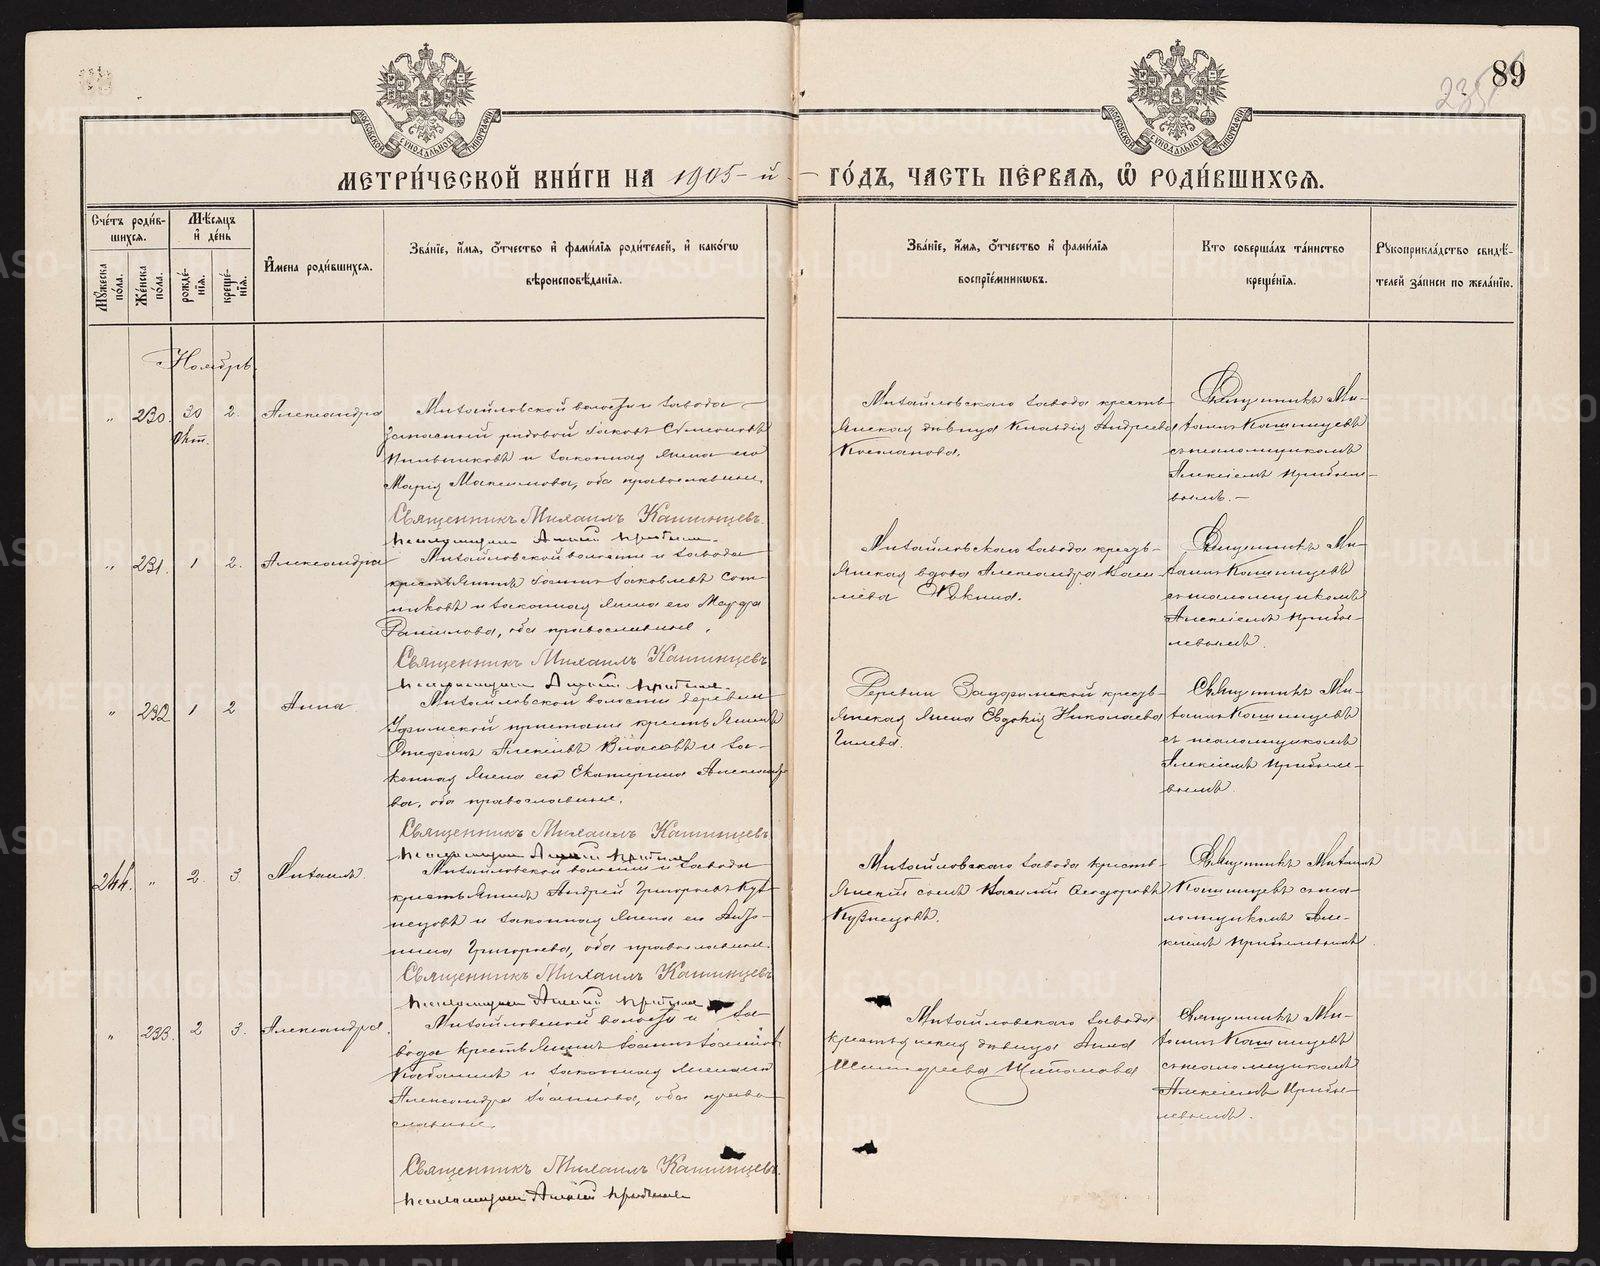 89
235
МЕТРИ́ЧЕСКОЙ КНИ́ГИ НА 1905-й ГО́ДЪ, ЧАСТЬ ПЕ́РВАЯ, Ѡ РОДИ́ВШИХСЯ.
Сче́тъ роди́в-
шихся.
Мѣ́сяцъ
и де́нь
Мꙋ́жеска
по́ла.
Же́нска
по́ла.
рожде́-
нія.
креще́-
нія.
И҆мена роди́вшихся.
Зва́ніе, и҆́мя, ѻ҆́тчество и҆ фами́лія роди́телей, и҆ како́гѡ
вѣроисповѣ́данія.
Зва́ніе, и҆́мя, ѻ҆́тчество и҆ фами́лія
воспріе́мниковъ.
Кто соверша́лъ та́инство
креще́нія.
Рꙋкоприкла́дство свидѣ́-
телей за́писи по жела́нію.
Ноябрь.
" 230. 30 Окт. 2. Александра
Михайловской волости и завода
запасный рядовой Іаковъ Симеоновъ
Пильниковъ и законная жена его
Марія Максимова, оба православные.
Священникъ Михаилъ Кашинцевъ.
Псаломщикъ Алексій Прибыл.
Михайловскаго завода кресть-
янская дѣвица Клавдія Андреева
Священникъ Ми-
хаилъ Кашинцевъ
съ псаломщикомъ
Алексіемъ Прибыле-
вымъ.
" 231. 1 2. Александра
Михайловской волости и завода
крестьянинъ Іоаннъ Іаковлевъ Сот-
никовъ и законная жена его Марѳа
оба православные.
Священникъ Михаилъ Кашинцевъ
Псаломщикъ Алексій Прибыл.
Михайловскаго завода кресть-
янская вдова Александра
Священникъ Ми-
хаилъ Кашинцевъ
съ псаломщикомъ
Алексіемъ Прибы-
левымъ.
" 232 1 2 Анна
Михайловской волости деревни
Уфимской пристани крестьянинъ
Стефанъ Алексіевъ Власовъ и за-
конная жена его Екатерина Александро-
ва, оба православные.
Священникъ Михаилъ Кашинцевъ
Псаломщикъ Алексій Прибыл.
Деревни Зауфимской кресть-
янская жена Евдокія Николаева
Гилева.
Священникъ Ми-
хаилъ Кашинцевъ
съ псаломщикомъ
Алексіемъ Прибыле-
вымъ.
244. " 2. 3. Михаилъ.
Михайловской волости и завода
крестьянинъ Андрей Григорьевъ Куз-
нецовъ и законная жена его Анто-
нина Григорьева, оба православные.
Священникъ Михаилъ Кашинцевъ
Псаломщикъ Алексій Прибыл.
Михайловскаго завода кресть-
янскій сынъ Василій Ѳеодоровъ
Кузнецовъ.
Священникъ Михаилъ
Кашинцевъ съ пса-
ломщикомъ Але-
ксіемъ Прибылевымъ
" 233. 2 3. Александра.
Михайловской волости и за-
вода крестьянинъ Іоаннъ
и законная жена его
Александра Іоаннова, оба право-
славные.
Священникъ Михаилъ Кашинцевъ.
Псаломщикъ Алексій Прибылев
Михайловскаго завода
крестьянская дѣвица Анна
Священникъ Ми-
хаилъ Кашинцевъ
съ псаломщикомъ
Алексіемъ Прибы-
левымъ.
METRIKI.GASO-URAL.RU